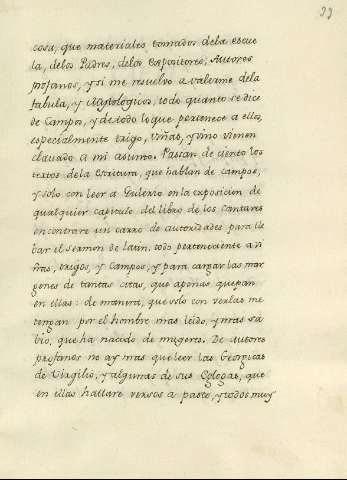 33
cosa, que materiales tomados dela escue
la, delos Padres, delos Expositores, Autores
profanos, y si me resuelvo a valerme dela
fabula, y Mythologicos, todo quanto se dice
de Campos, y de todo lo que pertenece a ellos,
especialmente trigo, viñas, y vino vienen
clavado a mi asumto. Pasan de ciento los
textos dela Escritura, que hablan de campos,
y solo con leer a Guilerio en la exposicion de
qualquier capitulo del libro de los Cantares
encontrare un carro de autoridades para lle
bar el Sermon de latin, todo perteneciente a vi
ñas, trigos, y Campos, y para cargar las mar
genes de tantas citas, que apenas quepan
en ellas: de manera, que solo con verlas me
tengan por el hombre mas leido, y mas sa
bio, que ha nacido de mugeres. De autores
profanos no ay mas que leer las Georgicas
de Virgilio, y algunas de sus Eglogas, que
en ellas hallare versos a pasto, y todos muy